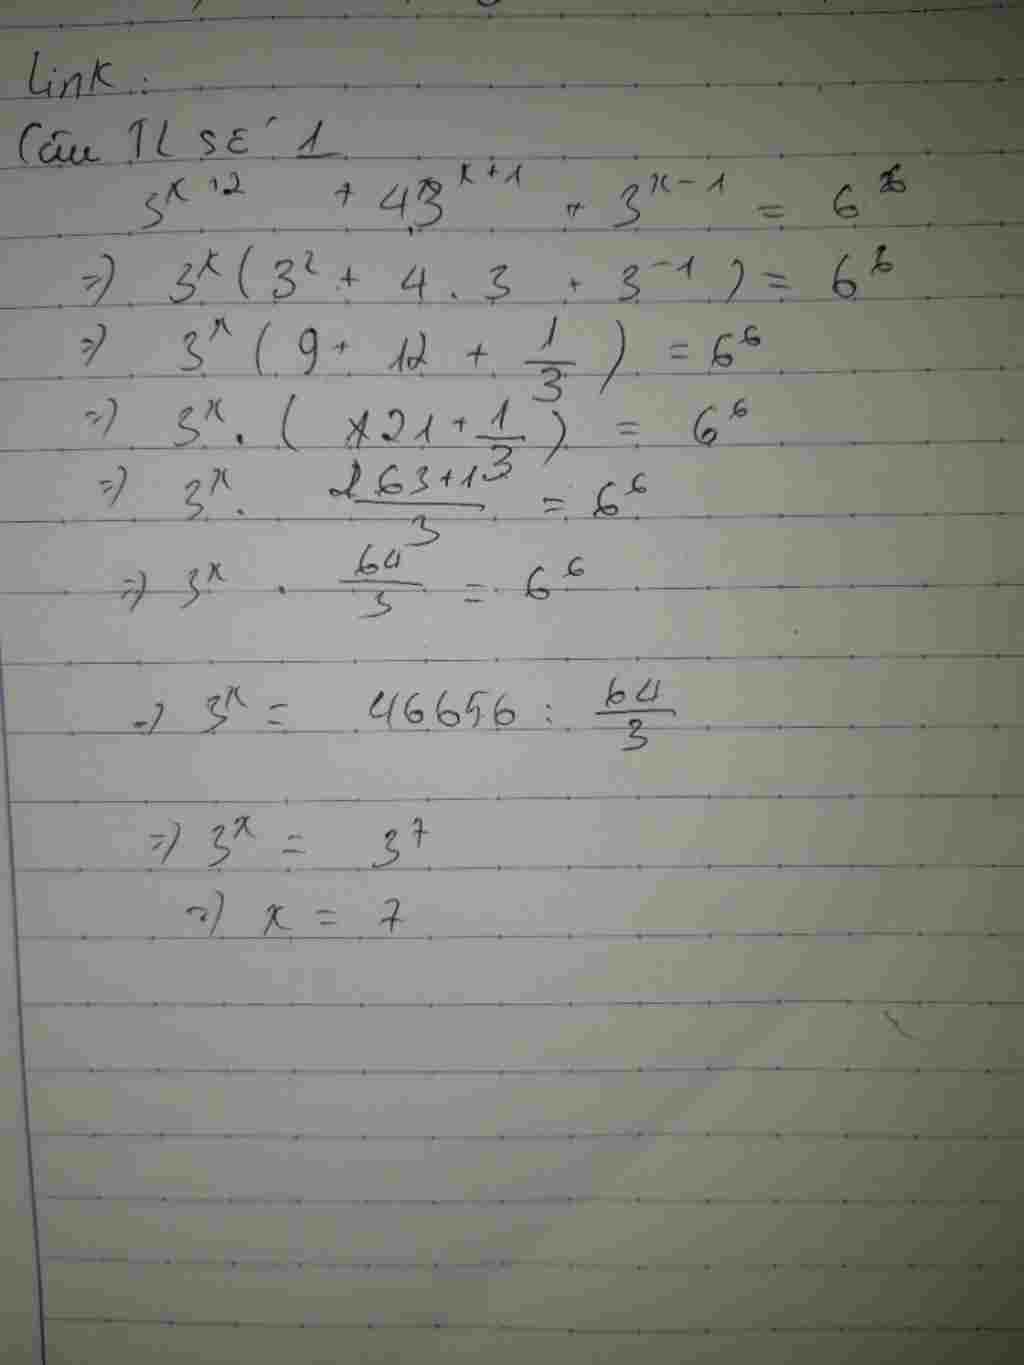 Link:
Câu TL số 1
3^{x+2} + 4.3^{x+1} + 3^{x-1} = 6^6
=) 3^x ( 3^2 + 4 . 3 + 3^{-1} ) = 6^6
=) 3^x ( 9 + 12 + \frac{1}{3} ) = 6^6
=) 3^x . ( 21 + \frac{1}{3} ) = 6^6
=) 3^x . \frac{63+1}{3} = 6^6
=) 3^x . \frac{64}{3} = 6^6
=) 3^x = 46656 : \frac{64}{3}
=) 3^x = 3^7
=) x = 7